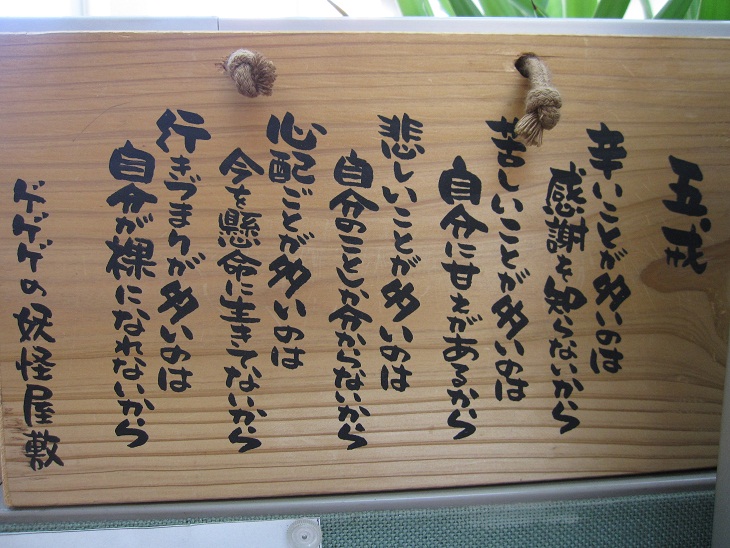 五戒
辛いことが多いのは
感謝を知らないから
苦しいことが多いのは
自分に甘えがあるから
悲しいことが多いのは
自分のことしか分からないから
心配ごとが多いのは
今を懸命に生きてないから
行きづまりが多いのは
自分が裸になれないから
ゲゲゲの妖怪屋敷